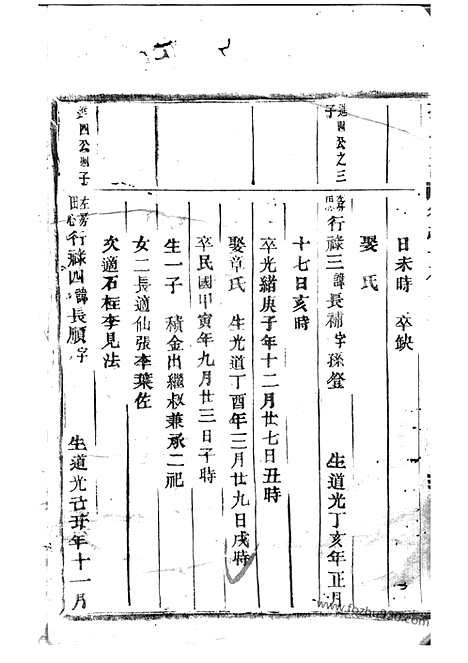 日未時 卒缺
娶 氏
進四公之三
子
行祿三諱長補字孫登 生道光丁亥年正月
十七日亥時
卒光緒庚子年十二月廿七日丑時
娶章氏 生光道丁酉年三月廿九日戌時
卒民國甲寅年九月廿三日子時
生一子 積金出繼叔兼承二祀
女二長適仙張李葉佐
次適石框李見法
進四公四子
左旁
田心
行祿四諱長順字 生道光己丑年十一月